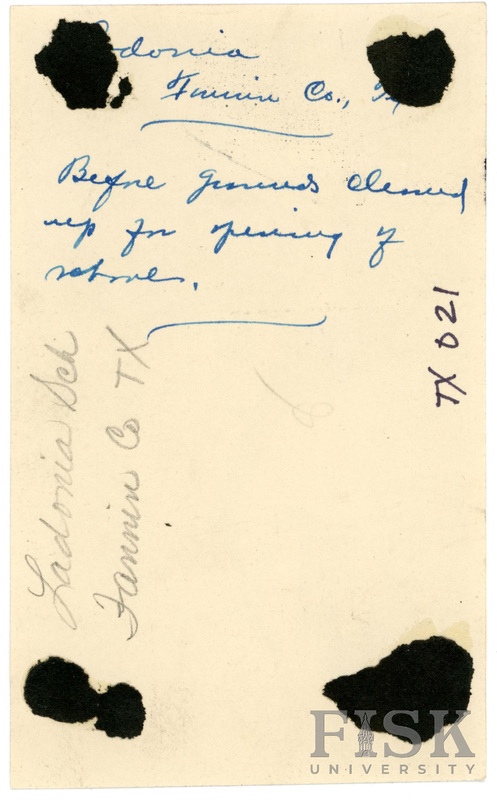 adonia
Fannin Co., Tx
Before grounds cleaned
up for opening of
school.
TX 021
Ladonia Sch
Fannin Co TX
FISK
UNIVERSITY